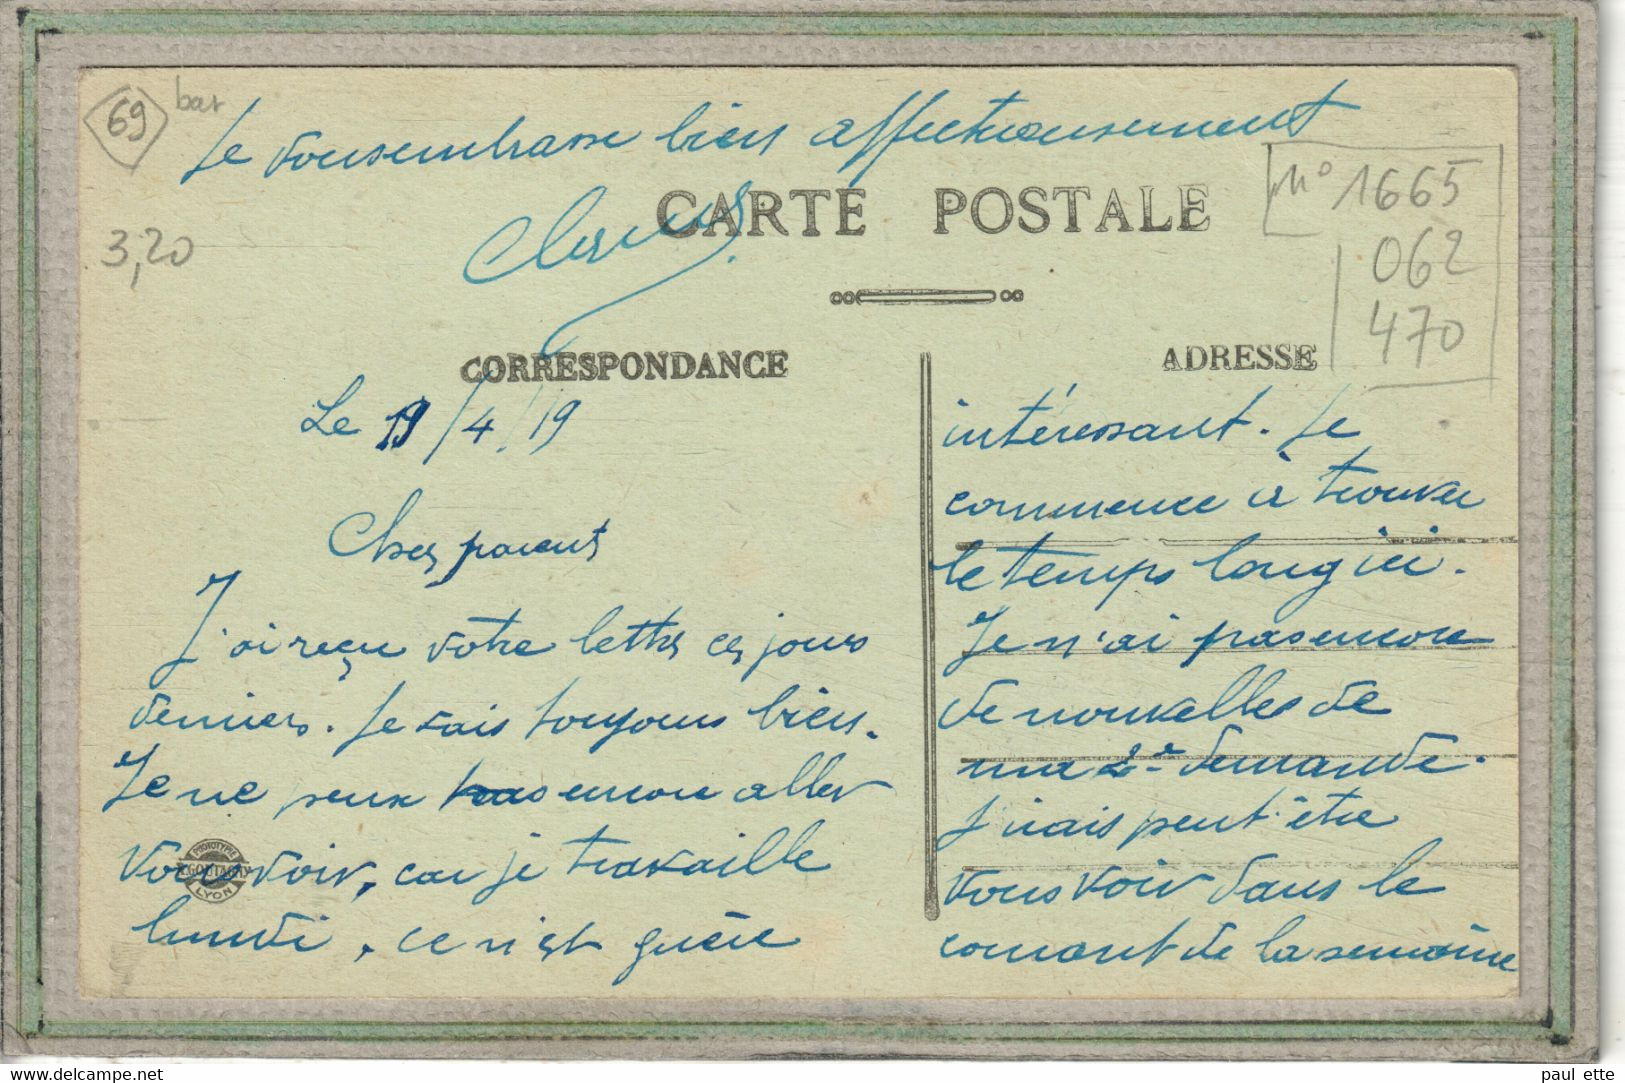 69 bar
Je vous embrasse bien affectueusement
CARTE POSTALE
N° 1665
062
470
3,20
CORRESPONDANCE
ADRESSE
Le 19/4/19
Chers parents
J'ai reçu votre lettre ces jours
derniers. Je vais toujours bien.
Je ne peux pas encore aller
vous voir, car je travaille
lundi, ce n'est guère
intéressant. Je
commence à trouver
le temps long ici.
Je n'ai pas encore
de nouvelles de
ma 2e demande.
J'irais peut-être
vous voir dans le
courant de la semaine
PHOTOTYPIE
GOUTAGNY
LYON
www.delcampe.net
paul ette